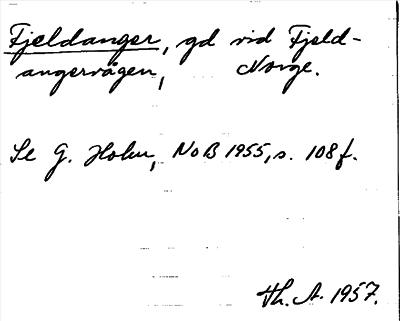 Fjeldanger, gd vid Fjeld-
angervågen, Norge.
Se G. Holm, NoB 1955, s. 108 f.
Th. A. 1957.